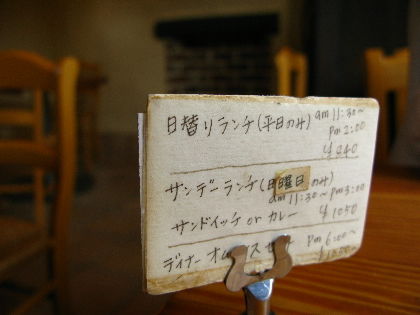 日替りランチ(平日のみ) am 11:30~
pm 2:00
¥940
サンデーランチ(日曜日のみ)
am 11:30~pm 3:00
サンドイッチ or カレー ¥1050
ディナー pm 6:00~